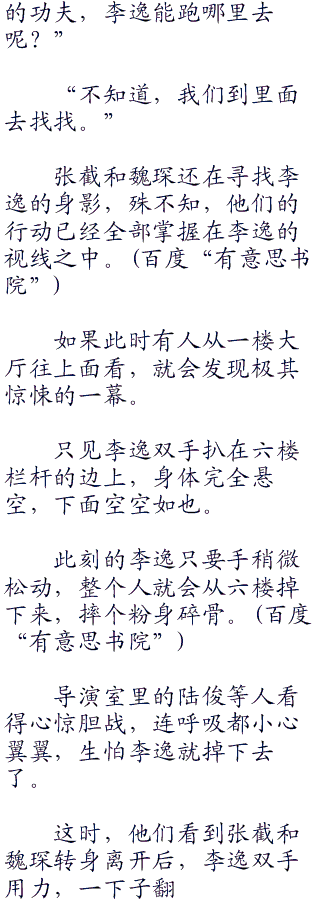 的功夫，李逸能跑哪里去
呢？”
“不知道，我们到里面
去找找。”
张截和魏琛还在寻找李
逸的身影，殊不知，他们的
行动已经全部掌握在李逸的
视线之中。(百度“有意思书
院”)
如果此时有人从一楼大
厅往上面看，就会发现极其
惊悚的一幕。
只见李逸双手扒在六楼
栏杆的边上，身体完全悬
空，下面空空如也。
此刻的李逸只要手稍微
松动，整个人就会从六楼掉
下来，摔个粉身碎骨。(百度
“有意思书院”)
导演室里的陆俊等人看
得心惊胆战，连呼吸都小心
翼翼，生怕李逸就掉下去
了。
这时，他们看到张截和
魏琛转身离开后，李逸双手
用力，一下子翻